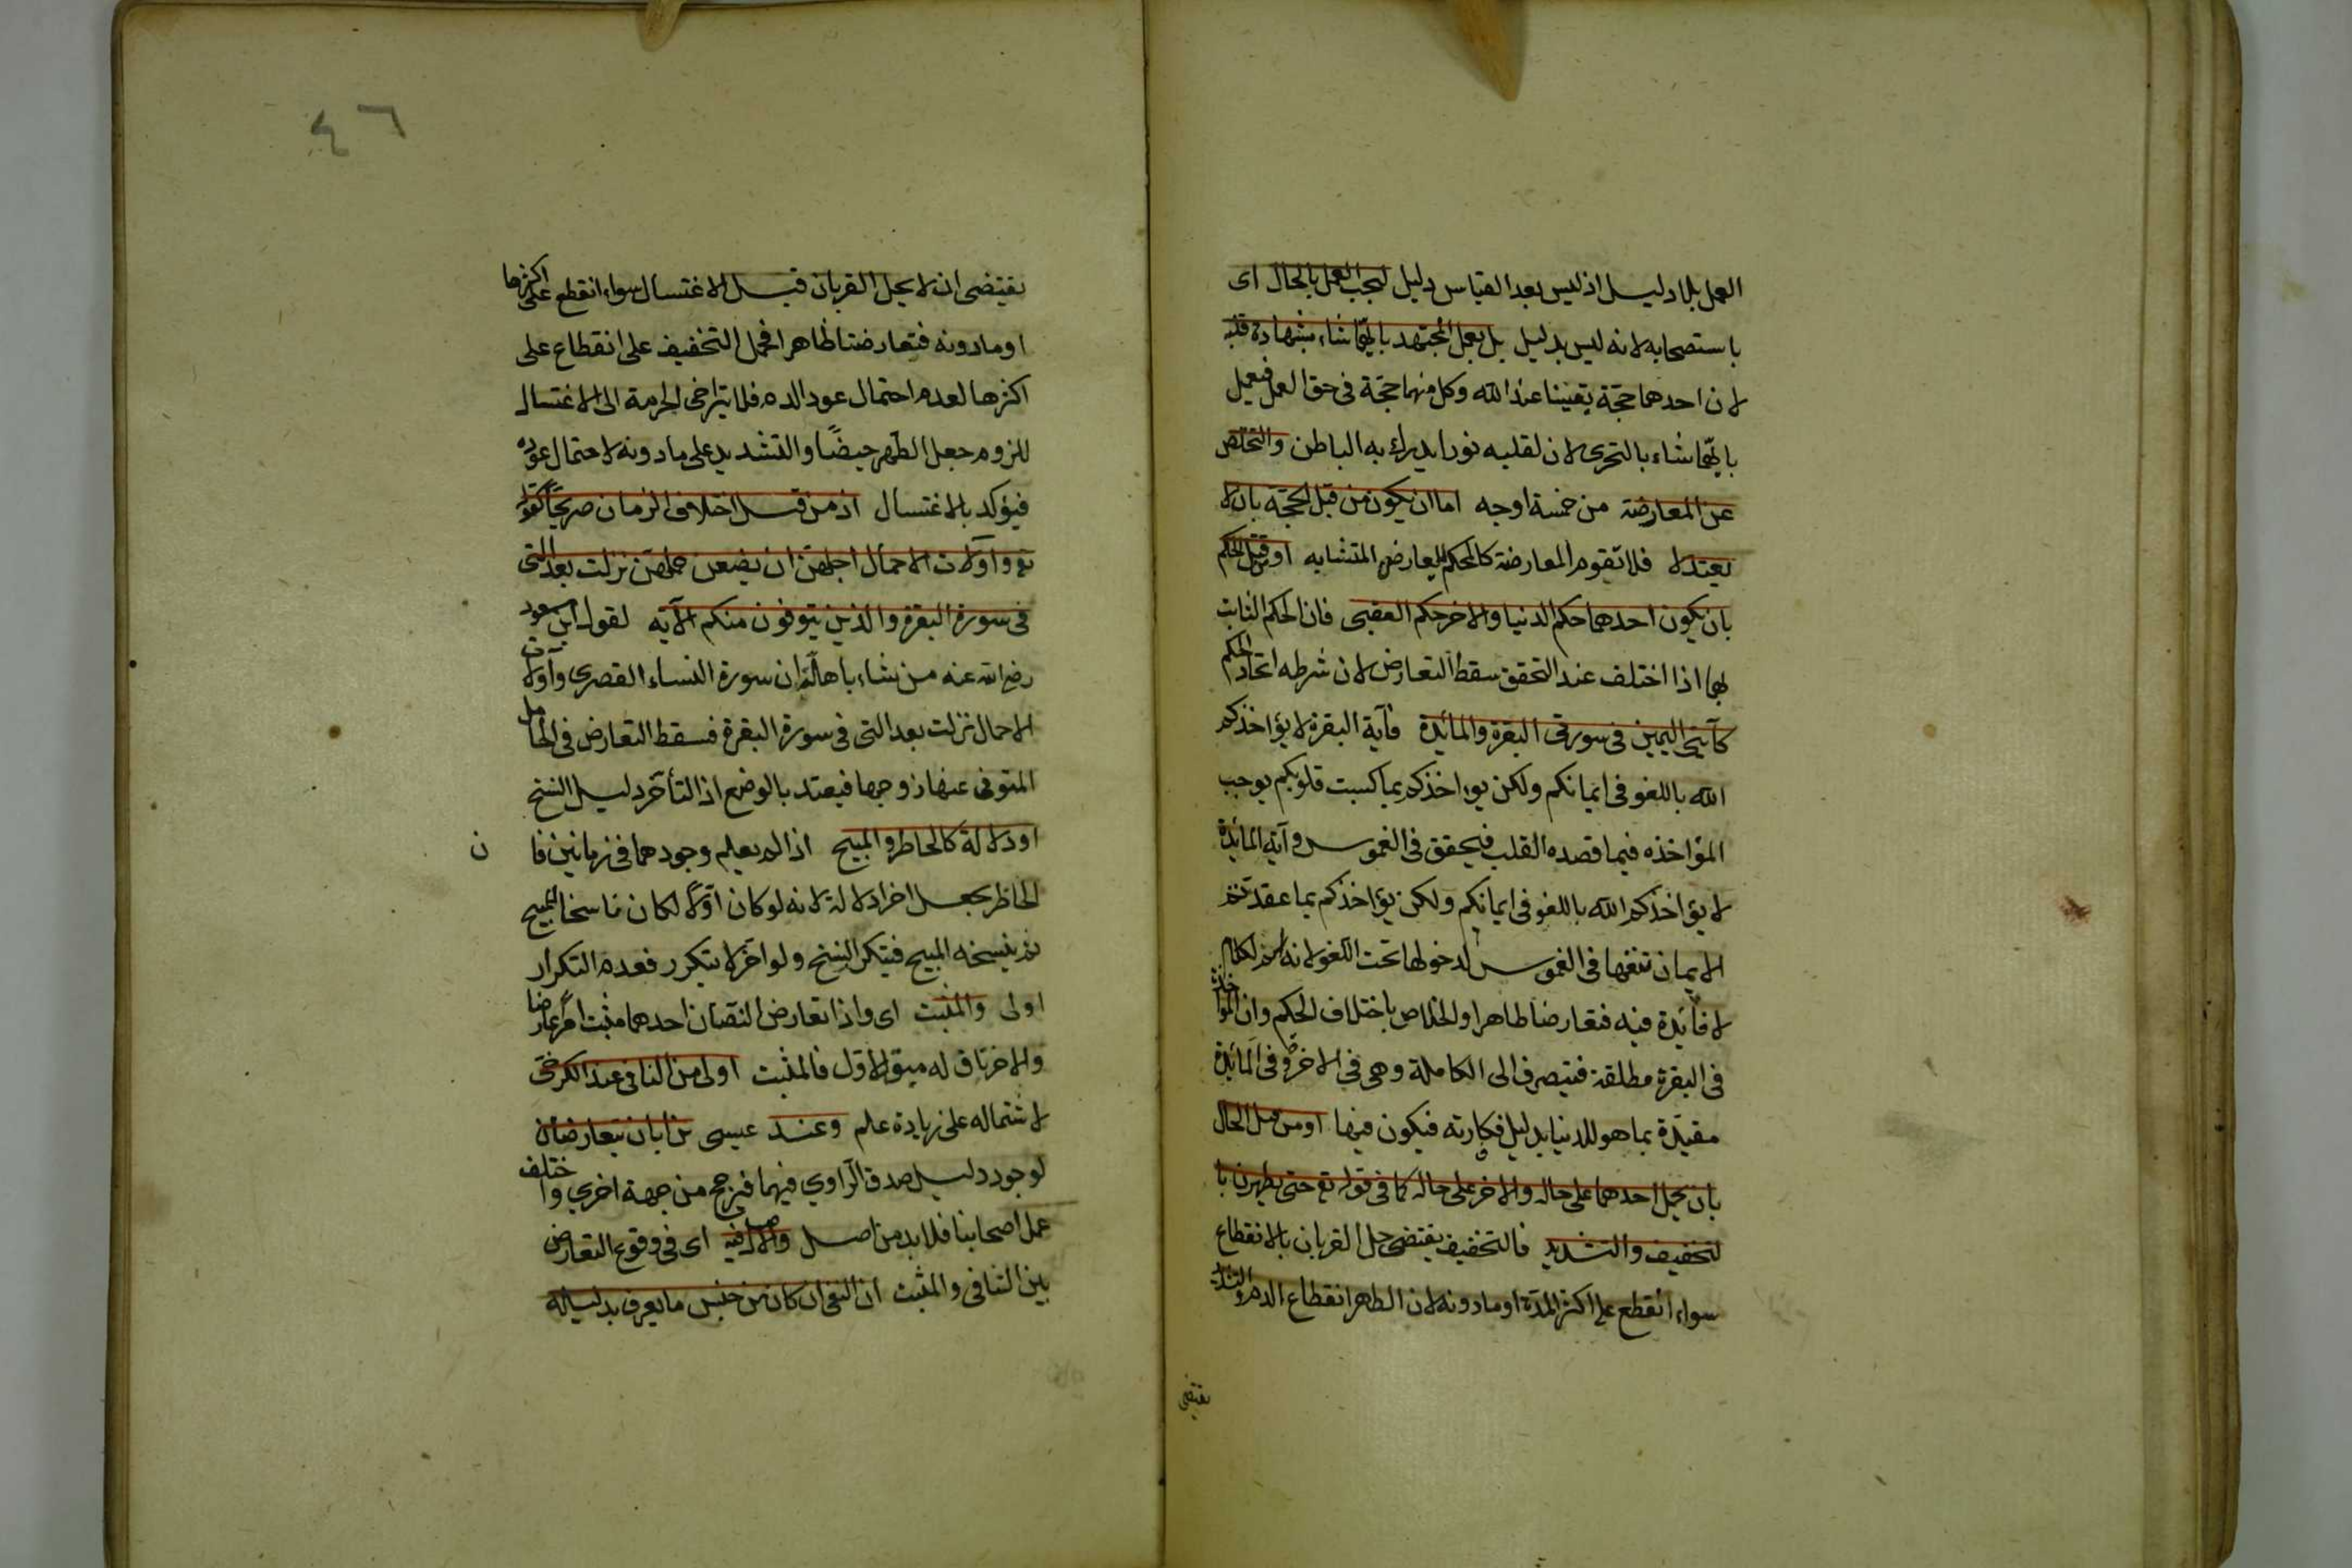 العمل بلا دليل اذ ليس بعد القياس دليل ليجب العمل بالحال اى
باستصحابه لانه ليس بدليل بل يعمل المجتهد بايهما شاء بشهادة قلبه
لان احدهما حجّة يقينا عند الله وكل منهما حجّة فى حق العمل فيعمل
بايّهما شاء بالتحرى لان لقلبه نورا يدرك به الباطن والتخلص
عن المعارضة من خمسة اوجه اما ان يكون من قبل الحجّة بان لا
يعتدلا فلا تقوم المعارضة كالمحكم يعارض المتشابه او قبل الحكم
بان يكون احدهما حكم الدنيا والاخر حكم العقبى فان الحكم الثابت
بهما اذا اختلف عند التحقق سقط التعارض لان شرطه اتحاد الحكم
كآيتى اليمين فى سورتى البقرة والمائدة فآية البقرة لا يؤاخذكم
الله باللغو فى ايمانكم ولكن يؤاخذكم بما كسبت قلوبكم يوجب
المؤاخذه فيما قصده القلب فيحقق فى الغموس وآية المائدة
لا يؤاخذكم الله باللغو فى ايمانكم ولكن يؤاخذكم بما عقدتم
الايمان تنفيها فى الغموس لدخولها تحت اللغو لانه اسم لكلام
لا فائدة فيه فتعارضا ظاهرا والخلاص باختلاف الحكم وان المؤاخذة
فى البقرة مطلقة فتيصرف الى الكاملة وهى فى الاخرة وفى المائدة
مقيّدة بما هو للدنيا بدليل فكارته فيكون فيها او من قبل الحال
بان يحمل احدهما على حاله والاخر على حاله كما فى قوله تع حتى يطهرن با
لتخفيف والتشديد فالتخفيف يقتضى حل القربان بالانقطاع
سواء انقطع على اكثر المدّة او مادونه لان الطهر انقطاع الدم والتشديد
يقتضى
٤٦
يقتضى ان لا يحل القربان قبل الاغتسال سواء انقطع على اكثرها
او مادونه فتعارضتا ظاهرا فحمل التخفيف على انقطاع على
اكثرها لعدم احتمال عود الدم فلا يتراخى الحرمة الى الاغتسال
للزوم جعل الطهر حيضًا والتشديد على مادونه لاحتمال عوده
فيؤكد بالاغتسال او من قبل اختلاف الزمان صريحًا كقوله
تع واولات الاحمال اجلهنّ ان يضعن حملهنّ نزلت بعد التى
فى سورة البقرة والذين يتوفون منكم الآية لقول ابن مسعود
رضى الله عنه من شاء باهلته ان سورة النساء القصرى واولات
الاحمال نزلت بعد التى فى سورة البقرة فسقط التعارض فى الحامل
المتوفى عنها زوجها فيعتد بالوضع اذ التأخّر دليل النسخ
او دلالة كالحاظر والمبيح اذا لم يعلم وجودهما فى زمانين فا
ن
الحاظر يجعل اخرا دلالة لانه لو كان اوّلا لكان ناسخا للمبيح
ثم ينسخه المبيح فيتكرر النسخ ولو اخّر لا يتكرر فعدم التكرار
اولى والمثبت اى واذا تعارض النصّان احدهما مثبت امرا عارضا
والاخر ناف له مبقى الاوّل فالمثبت اولى من النافى عند الكرخى
لاشتماله على زيادة علم وعند عيسى بن ابان يتعارضان
لوجود دليل صدق الرّاوي فيهما فيرجح من جهة اخرى واختلف
عمل اصحابنا فلابد من اصل والاصل فيه اى فى وقوع التعارض
بين النافى والمثبت ان النفى ان كان من جنس ما يعرف بدليله